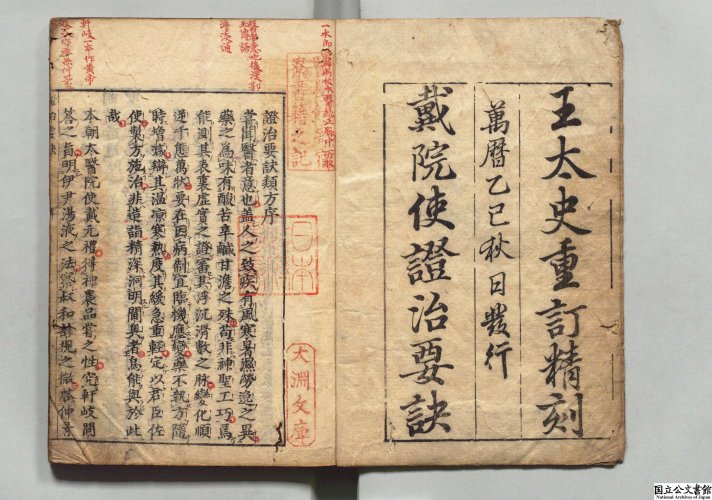 王太史重訂精刻
萬曆乙巳秋日發行
戴院使證治要訣
證治要訣類方序
嘗聞醫者意也盖人之致疾有風寒暑濕勞逸之異
藥之爲味有酸苦辛鹹甘澹之殊苟非神聖工巧焉
能測其表裏虛實之證審其浮沉滑數之脉變化順
逆千態萬狀要在因病制宜臨機應變藥不執方隨
時增減辯其温凉寒熱度其緩急重輕定以君臣佐
使製方施治非造詣精深洞明閫奥者烏能與於此
哉
本朝太醫院使戴元禮得神農品嘗之性究軒岐問
答之旨明伊尹湯液之法察叔和診視之微 仲景
軒岐一本作黄帝
日本
大淵文庫
国立公文書館
National Archives of Japan